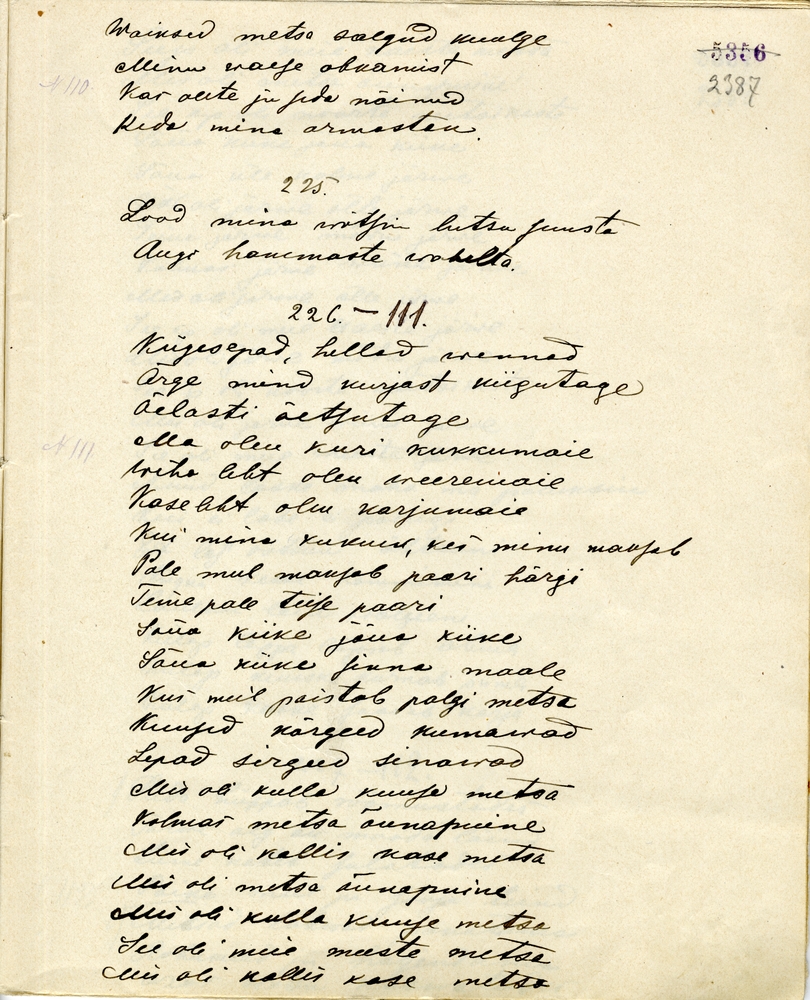 Waiksed metsa salgud kuulge
5356
Minu waese ohkamist
2387
N 110.
Kas olete ju seda näinud
Keda mina armastan.
225.
Lood mina wõtsin lutsu suusta
Augi hammaste wahelta.
226. — 111.
Kiigesepad, hellad wennad
Ärge mind kurjast kiigutage
Äelasti äetsutage
N 111
Ma olen kuri kukkumaie
Wiha leht olen weeremaie
Kaseleht olen karjumaie
Kui mina kukun, kes minu maksab
Pole mul maksab paari härgi
Teine pole teise paari
Sõua kiike jõua kiike
Sõua kiike sinna maale
Kus meil paistab palgi metsa
Kuused kõrged kumawad
Lepad sirged sinawad
Mis oli kulla kuuse metsa
Kolmas metsa õunapuine
Mis oli kallis kase metsa
Mis oli metsa õunapuine
Mis oli kulla kuuse metsa
See oli meie meeste metsa
Mis oli kallis kase metsa